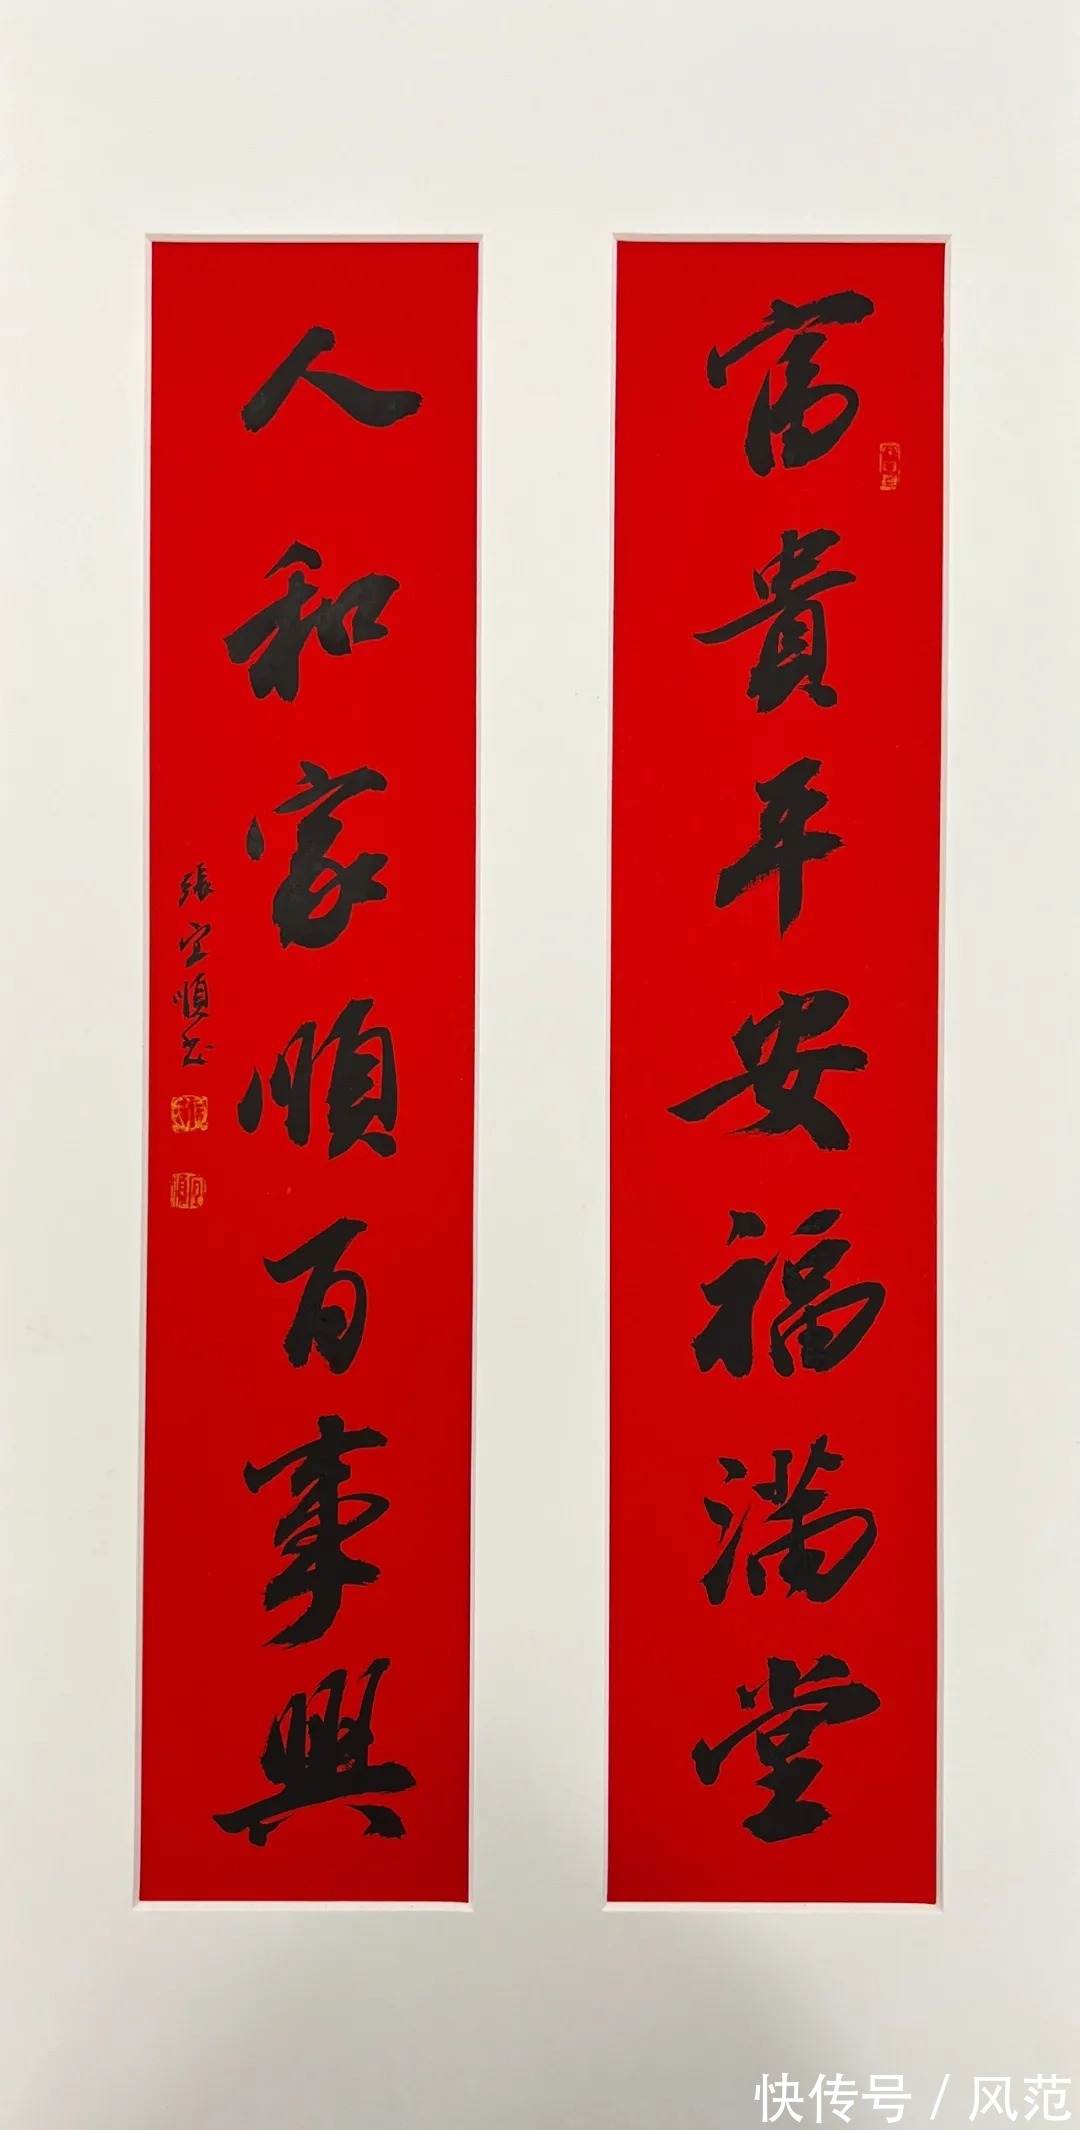 富貴平安福满堂
人和家順百事興
張宜順书
快传号/风范